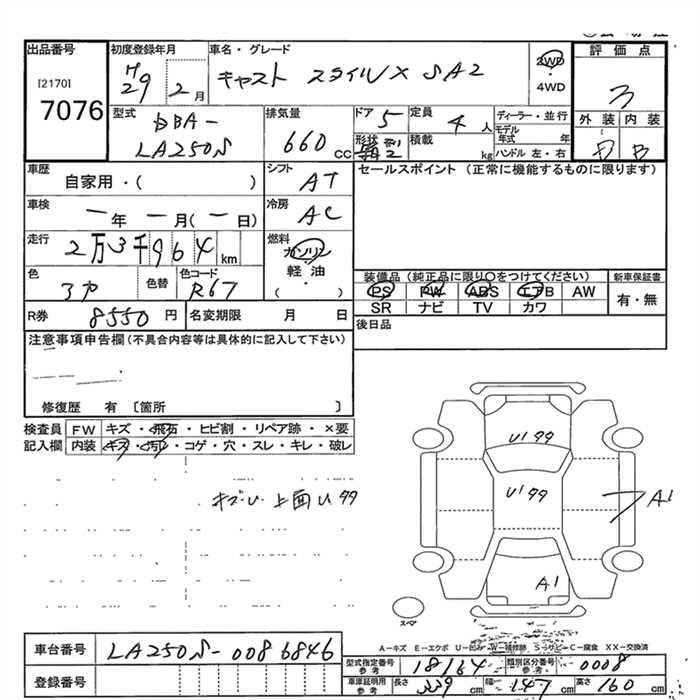 出品番号
[2170]
7076
初度登録年月
H29 2月
車名・グレード
キャスト スタイルX SA2
2WD
4WD
評価点
3
外装 内装
B
型式
DBA-
LA250S
排気量
660 cc
ドア 5
定員 4人
形状
積載 kg
ディーラー・並行
モデル年式 年
ハンドル 左・右
車歴
自家用・( )
シフト AT
セールスポイント (正常に機能するものに限ります)
車検
―年 ―月(―日)
冷房 AC
走行
2万3千964km
燃料
ガソリン
軽油
( ・ )
色
色替
色コード
R67
装備品(純正品に限り○をつけてください)
PS PW ABS エアB AW
SR ナビ TV カワ
新車保証書
有・無
R券 8550円
名変期限 月 日
後日品
注意事項申告欄(不具合内容等は具体的に記入して下さい)
修復歴 有 〔箇所 〕
検査員 FW キズ・飛石・ヒビ割・リペア跡・×要
記入欄 内装 キズ・汚レ・コゲ・穴・スレ・キレ・破レ
キズU 上面U 99
U1 99
U1 99
A1
A1
スペア
A-キズ E-エクボ U-凹ミ W-補修跡 S-サビ C-腐食 XX-交換済
車台番号 LA250S-0086846
登録番号
型式指定番号 参考 18164
類別区分番号 参考 0008
車庫証明用 参考 長さ 339cm 幅 147cm 高さ 160cm